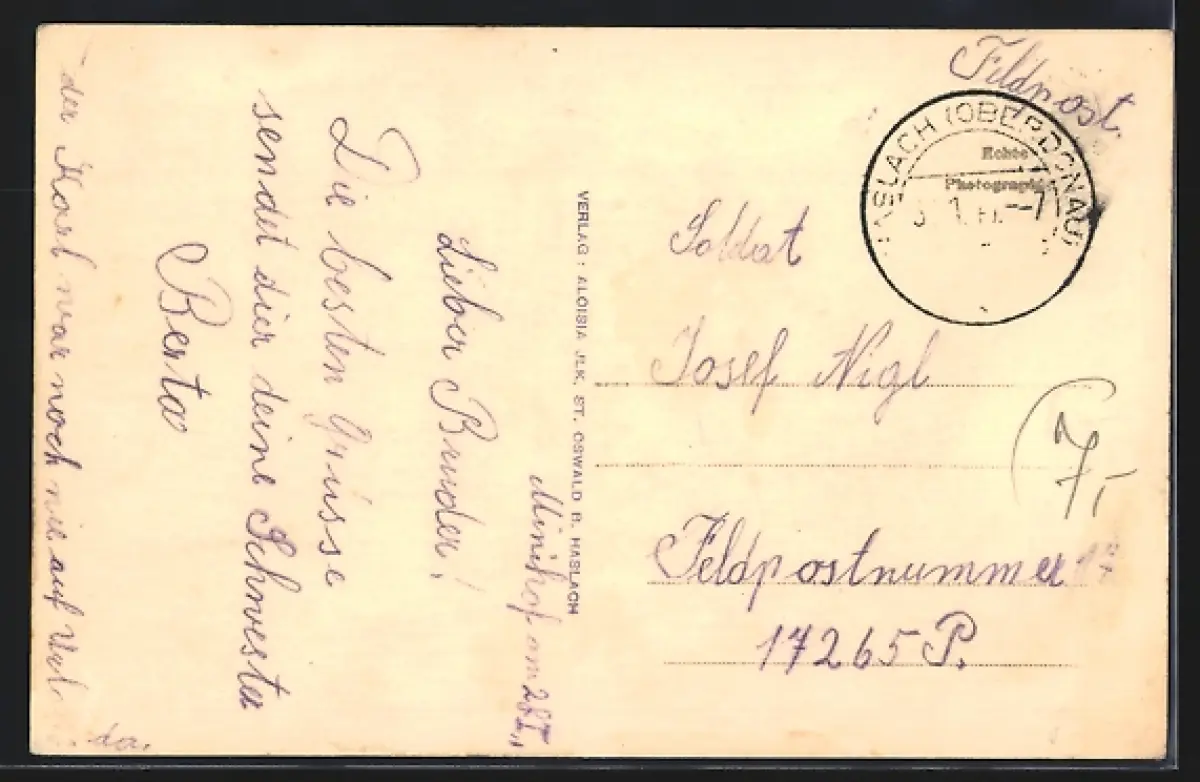 Minihof am 28I.,
Lieber Bruder!
Die besten Grüsse
sendet dier deine Schwester
Berta
der Karl war noch nie auf Url
da.
VERLAG: ALOISIA JEK, ST. OSWALD B. HASLACH
Feldpost.
HASLACH (OBERDONAU)
Echte
Photographie
Soldat
Josef Nigl
7,-
Feldpostnummer
17265 P.